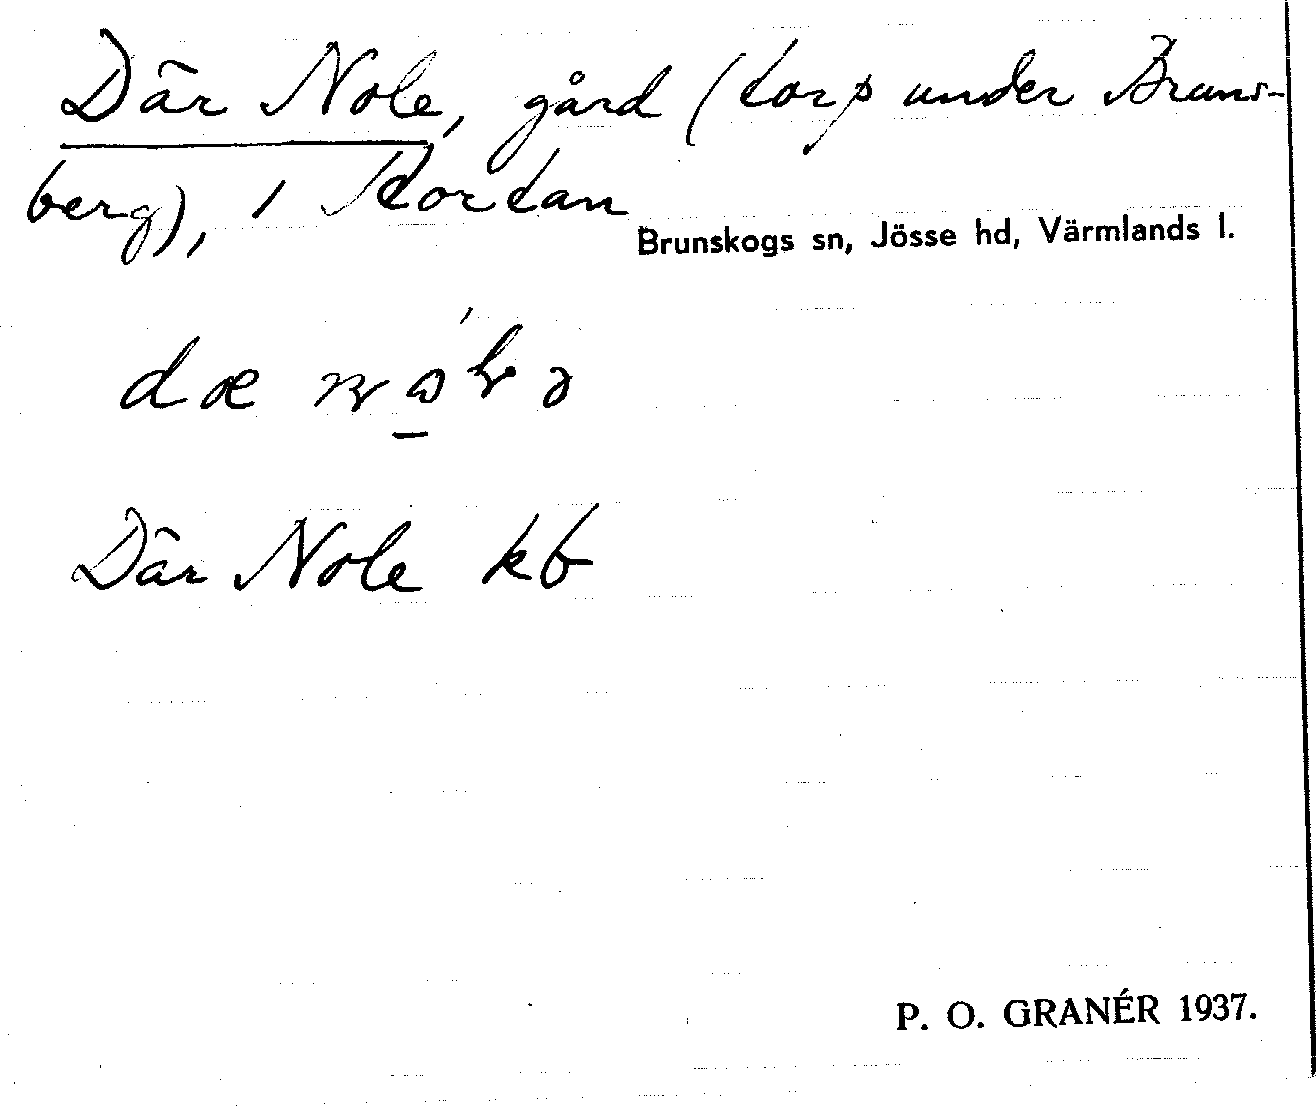 Där Nole, gård (torp under Bruns-
berg), i
Brunskogs sn, Jösse hd, Värmlands l.
Där Nole kb
P. O. GRANÉR 1937.